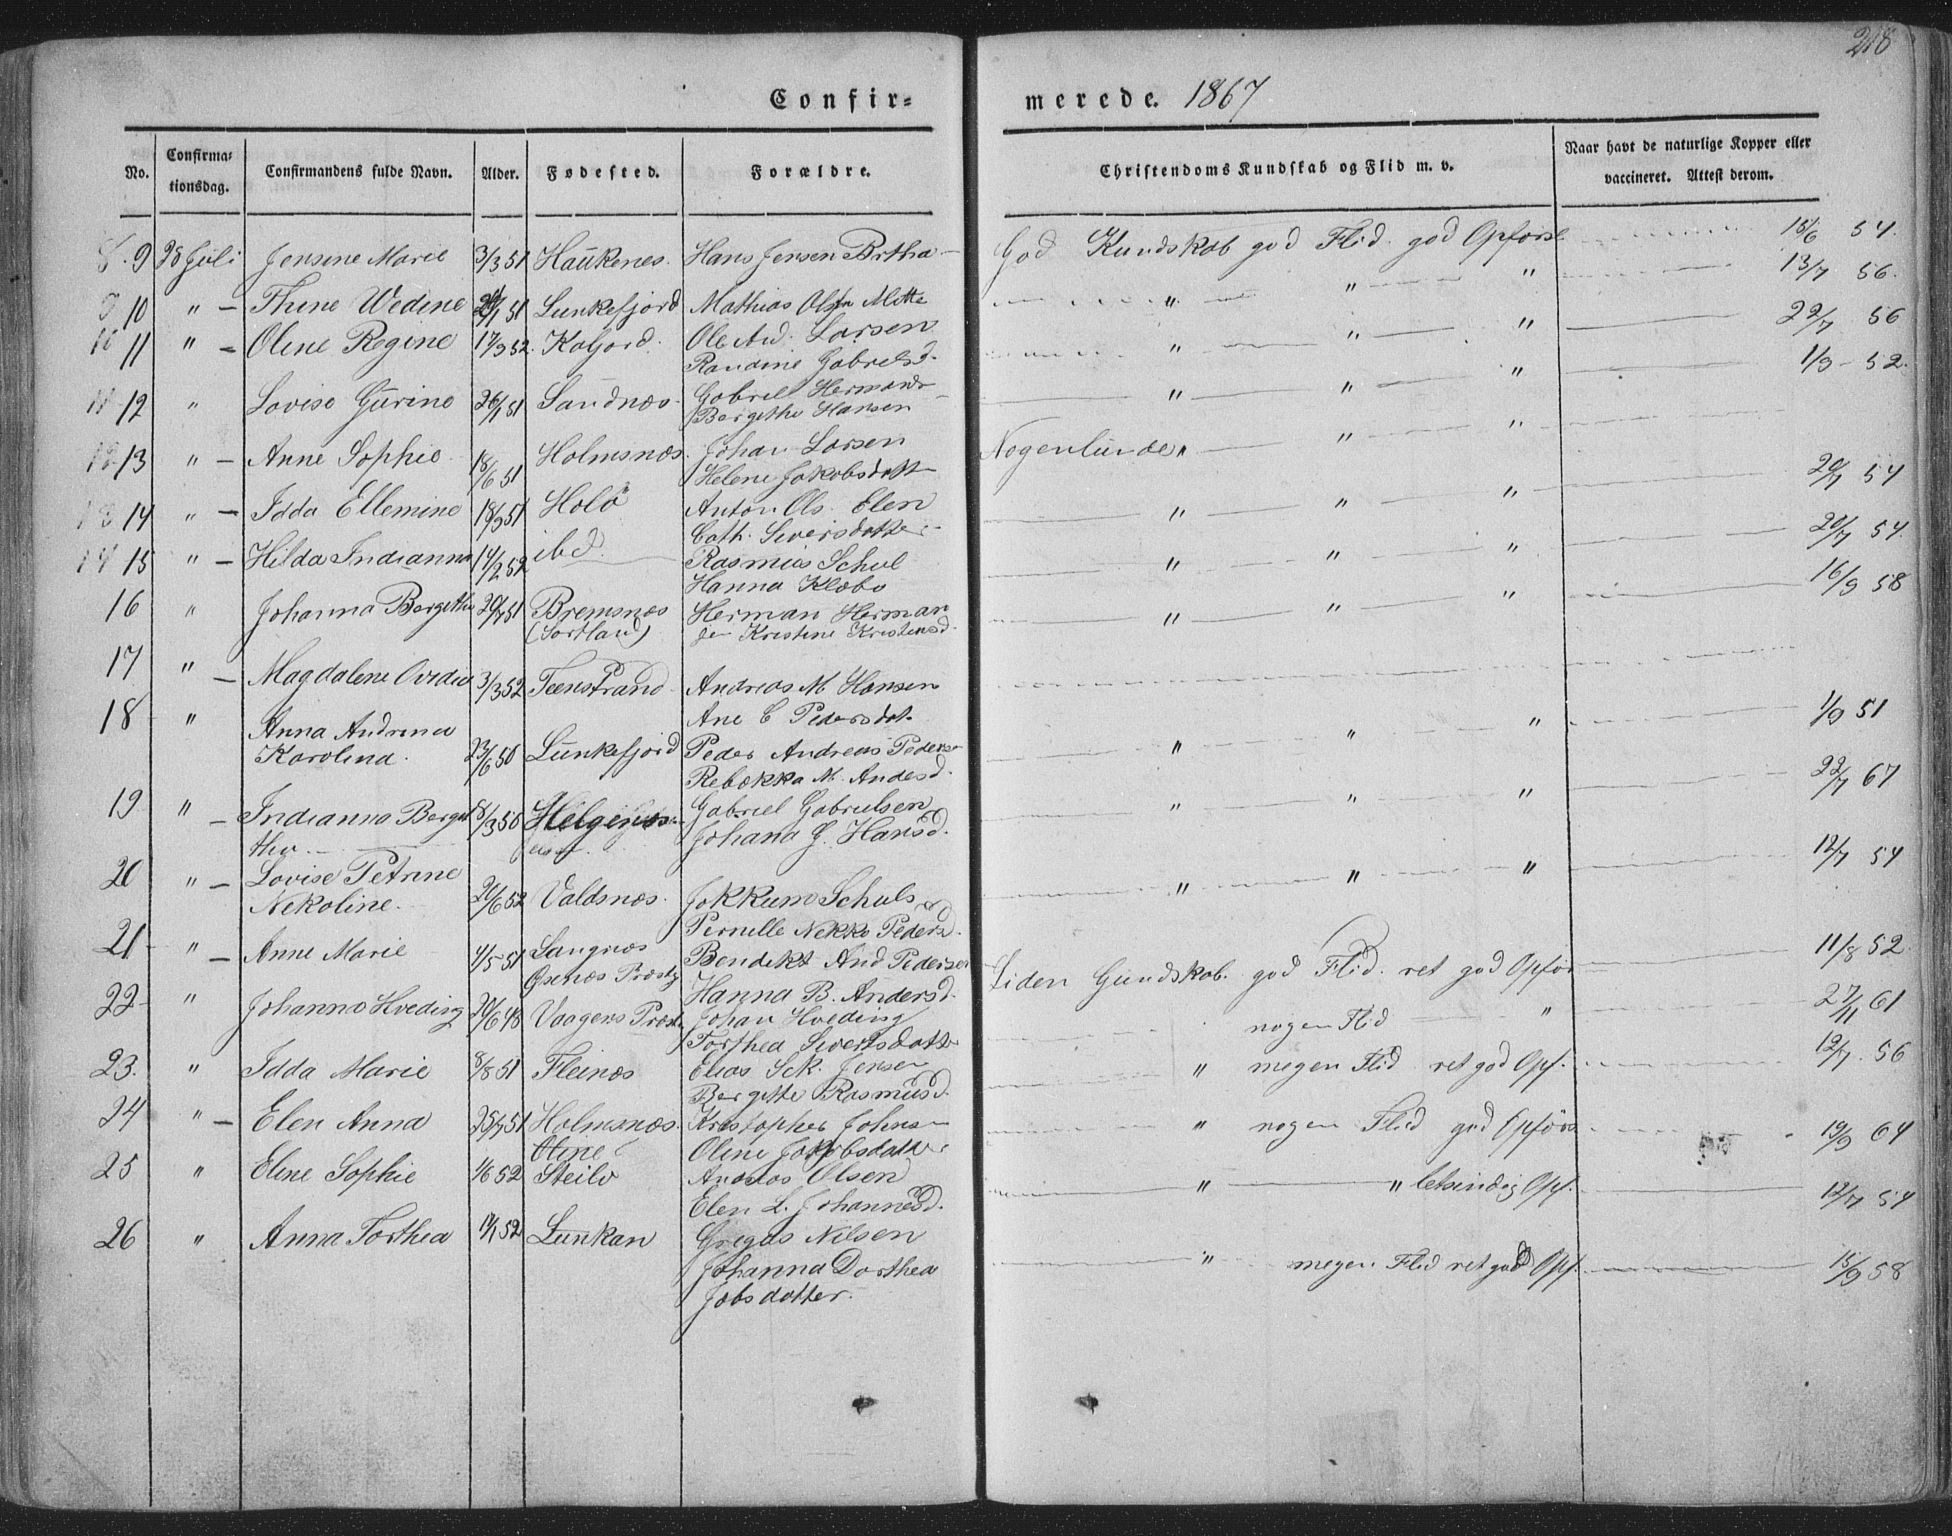 218
Confir-
merede. 1867
No.
Confirma-
tionsdag.
Confirmandens fulde Navn.
Alder.
Fødested.
Forældre.
Christendoms Kundskab og Flid m. v.
Naar havt de naturlige Kopper eller
vaccineret. Attest derom.
8. 9 28 Juli Jensine Marie 3/3 51 Haukenes. Hans Jensen Brtha God Kundskab god Flid. god Opførs. 18/6 54.
9 10 " Thine Wedine 51 Lunkefjord Mathias Olsen Mette " " " 13/7 56.
10 11 " Olene Regine 17/9 52. Kaljord. Ole And. Larsen " " " 22/7 56
Randine Gabrielsd.
11 12 " Lovise Gurine 26/1 51 Sandnæs Gabriel Hermans " " " 1/9 - 52.
Bergithe Hansen
12 13 " Anne Sophie 18/6 51 Holmsnæs. Johan Larsen Nogenlunde " " "
Helene Jakobsdatt
13 14 " Idda Ellemine 18/9 51 Holø Anton Ols. Elen " " " 20/7 54
Cath. Siversdatter
14 15 " Hilda Indianna 14/2 52 ibd. Rasmus Schul " " " 20/7 54.
Hanna Klæbo
16 " Johanna Bergithe 20/7 51 Bremsnæs Herman Herman " " " 16/9 58
(Sortland) sen Kristine Kristensd.
17 " Magdalene Ovedia 3/3 52 Teenstrand Andreas M Hansen
Ane C Pedersdat.
18 " Anna Andrina
Karolina. 23/6 50 Lunkefjord Peder Andreas Peders " " " 1/9 51
Rebækka M. Andersd.
19 " Indianna Berget 8/3 50 Helgenæs Gabriel Gabrielsen " " " 22/7 67
the Johana J. Hansd.
20 " Lovise Petrine
Nekoline. 20/6 52 Valdsnæs. Jokkum Schuls " " " 12/7 54
Pernille Nekko Pedersd.
21 " Anne Marie 4/5 51 Langnæs Bendikt And Pedersen Liden Gundskab. god Flid. ret god Opfør 11/8 52
Øxnæs Præstg Hanna B. Andersd.
22 " Johanna Hveding 20/6 48 Vaagens Præst. Johan Hveding nogen Flid " 27/11 61
Torthea Sivertsdatter
23. " Idda Marie 8/8 51 Fleinæs Elias Sck. Jensen " megen Flid ret god Opf. 12/7 56
Bergitte Rasmusd.
24 " Elen Anna 25/7 51 Holmsnæs. Kristopher Johns " nogen Flid god Opførs 19/9 64
Oline Jakobsdatter
25 " Eline Sophie 1/6 52 Steilo Andreas Olsen " " letsindig Opf. 12/7 54
Elen L. Johannesd.
26 " Anna Torthea 1/1 52 Lunkan Gregus Nilsen " megen Flid ret god Opf. 15/9 58
Johanna Dorthea
Jobsdatter.